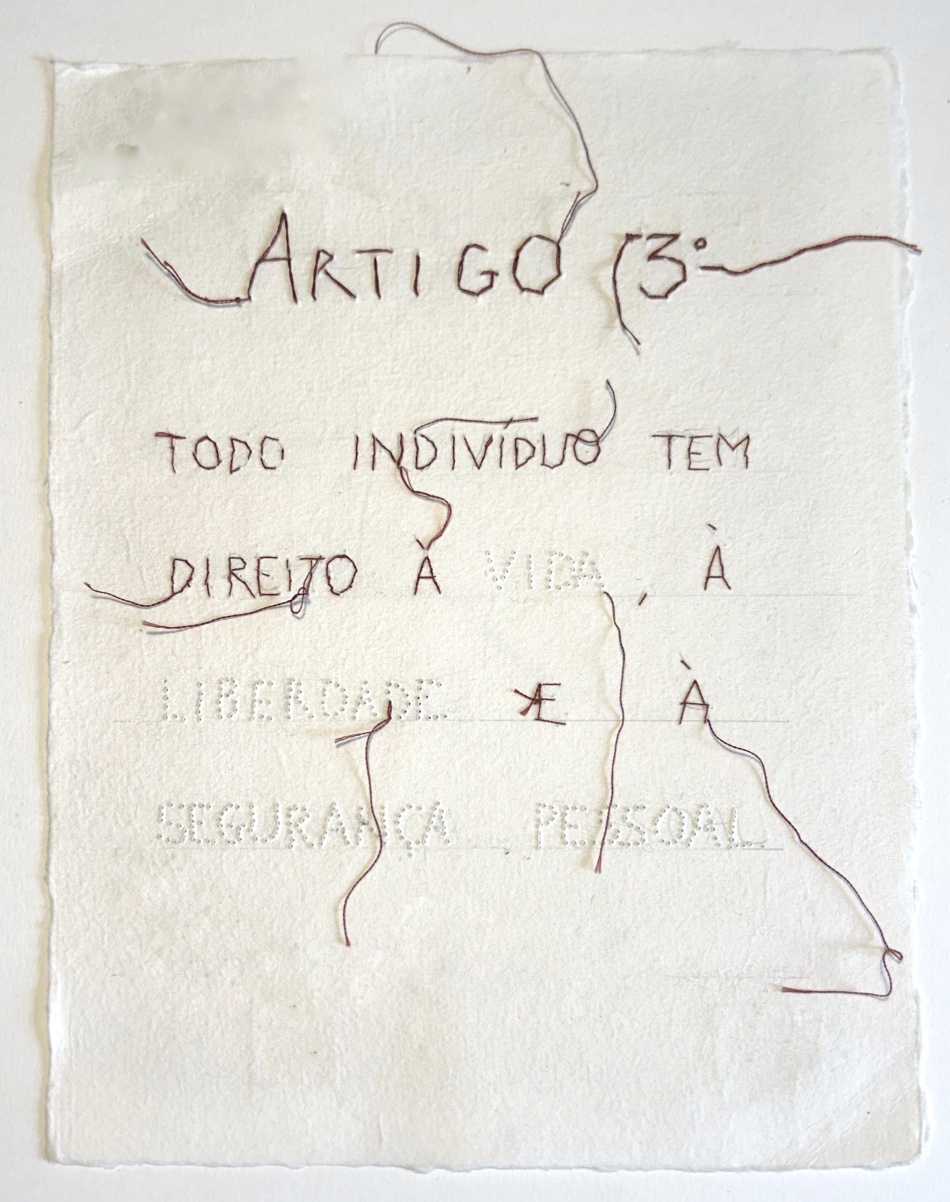 ARTIGO 3º
TODO INDIVÍDUO TEM
DIREITO À VIDA, À
LIBERDADE E À
SEGURANÇA PESSOAL